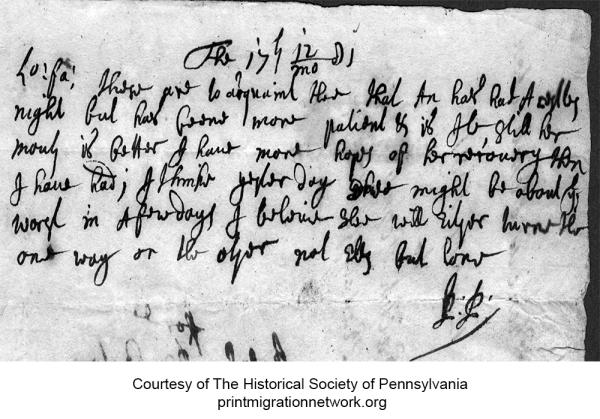 The 17th 12/mo 81
Lo: fa:
These are to acquaint thee that An has had A restles
night but has beene more patient & is Still her
mouth is better I have more hopes of her recovery then
I have had; I think yesterday shee might be about ye
worst in a few days I beleive she will Either turne the
one way or the other not Els but love
Courtesy of The Historical Society of Pennsylvania
printmigrationnetwork.org